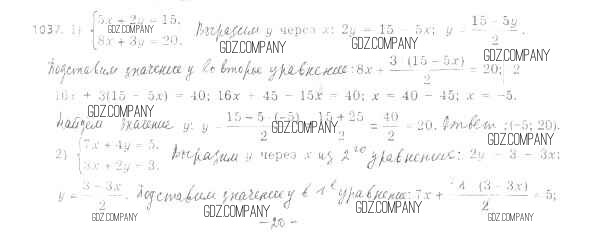 1037. 1) {5x + 2y = 15. Выразим y через x: 2y = 15 5x; y = 15 − 5y / 2.
GDZ.COMPANY
8x + 3y = 20.
GDZ.COMPANY GDZ.COMPANY
Подставим значение y во второе уравнение: 8x + 3 (15 − 5x) / 2 = 20; 2
GDZ.COMPANY
16x + 3(15 − 5x) = 40; 16x + 45 − 15x = 40; x = 40 − 45; x = −5.
GDZ.COMPANY
Найдем значение y: y = 15 − 5 · (−5) / 2 15 + 25 / 2 = 40 / 2 = 20. Ответ: (−5; 20).
GDZ.COMPANY GDZ.COMPANY
2) {7x + 4y = 5. 3x + 2y = 3. Выразим y через x из 2го уравнения: 2y = 3 − 3x;
GDZ.COMPANY
y = 3 − 3x / 2. Подставим значение y в 1е уравнение: 7x + 4 (3 − 3x) / 2 = 5;
GDZ.COMPANY GDZ.COMPANY GDZ.COMPANY GDZ.COMPANY
− 20 −